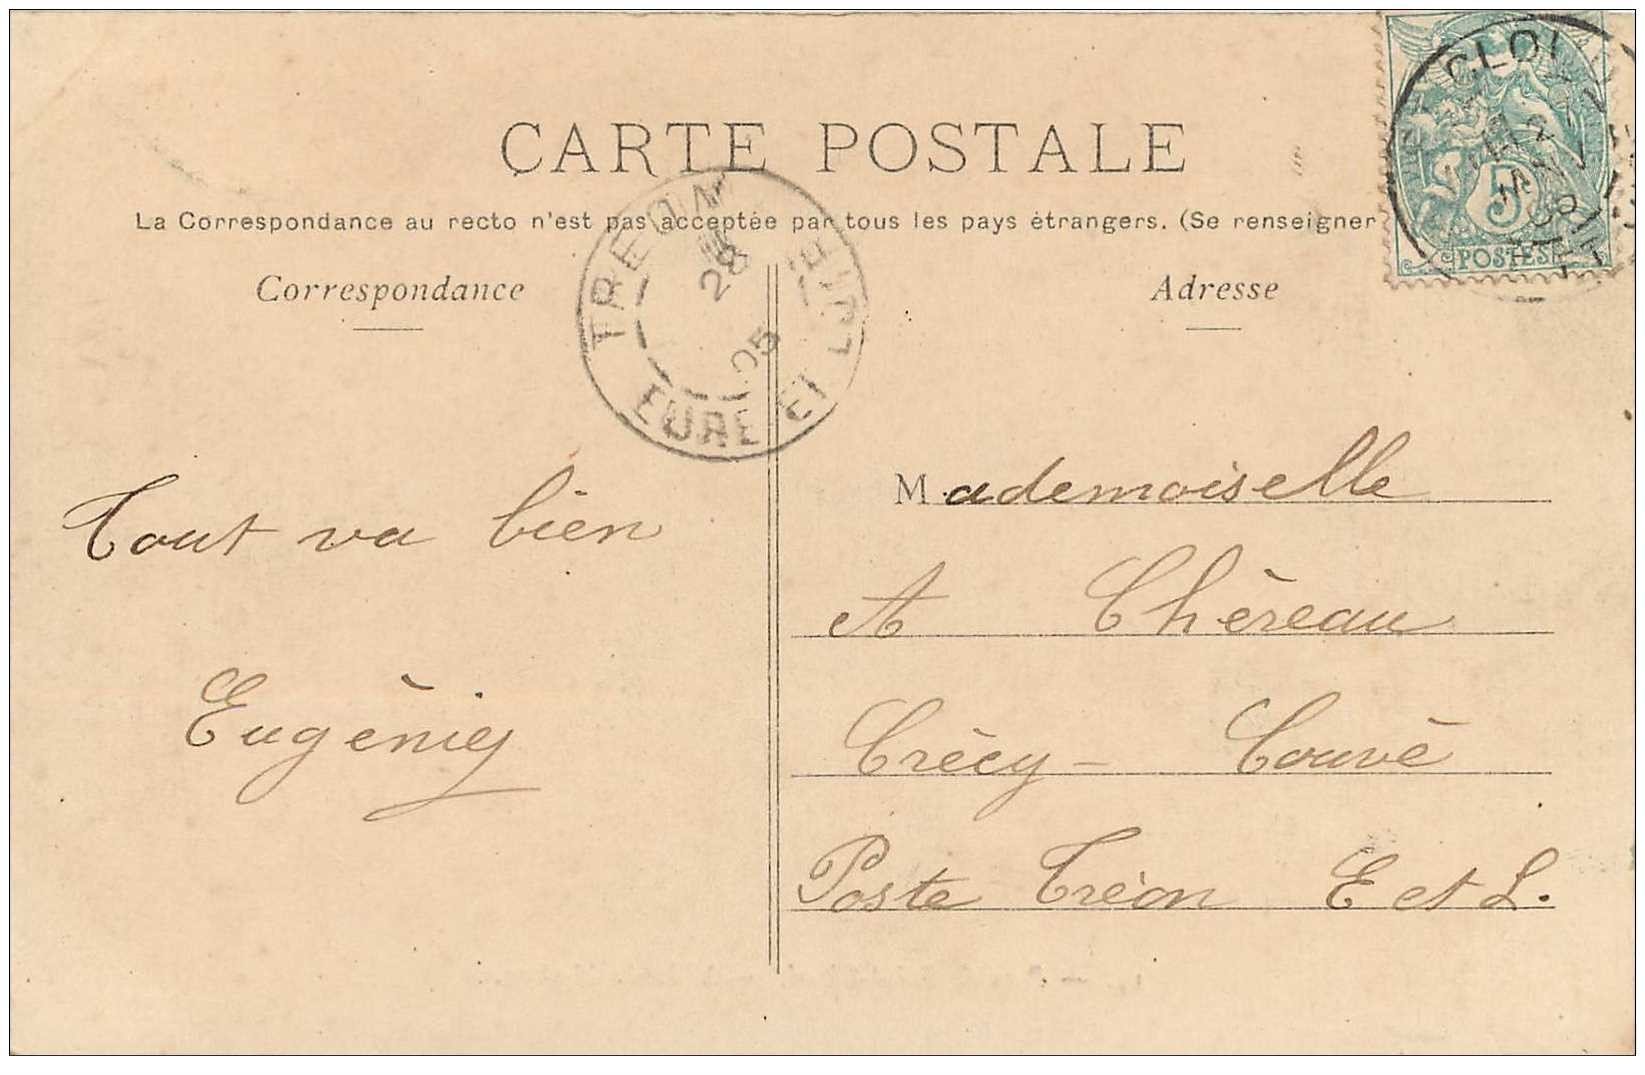 CARTE POSTALE
La Correspondance au recto n'est pas acceptée par tous les pays étrangers. (Se renseigner
Correspondance
Adresse
TREON
28
05
EURE ET LOIR
CLOY
5
POSTES
Tout va bien
Eugénie
Mademoiselle
A Chèreau
Crècy - Couvè
Poste Trèon E et L.